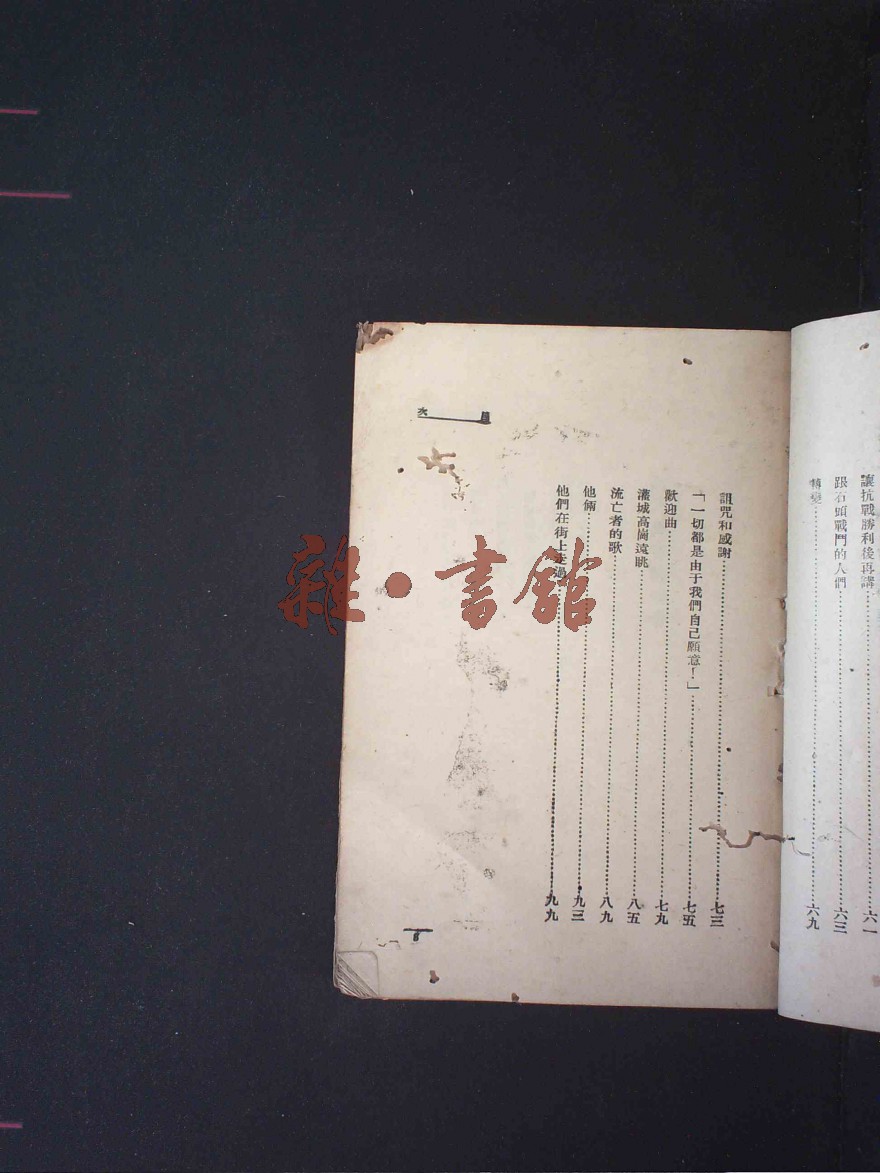 讓抗戰勝利後再講…………六一
跟石頭戰鬥的人們…………六三
轉變…………六九
目次
詛咒和感謝…………七三
「一切都是由于我們自己願意！」…………七五
歡迎曲…………七九
灕城高崗遠眺…………八五
流亡者的歌…………八九
他倆…………九三
他們在街上走過…………九九
8
雜·書館